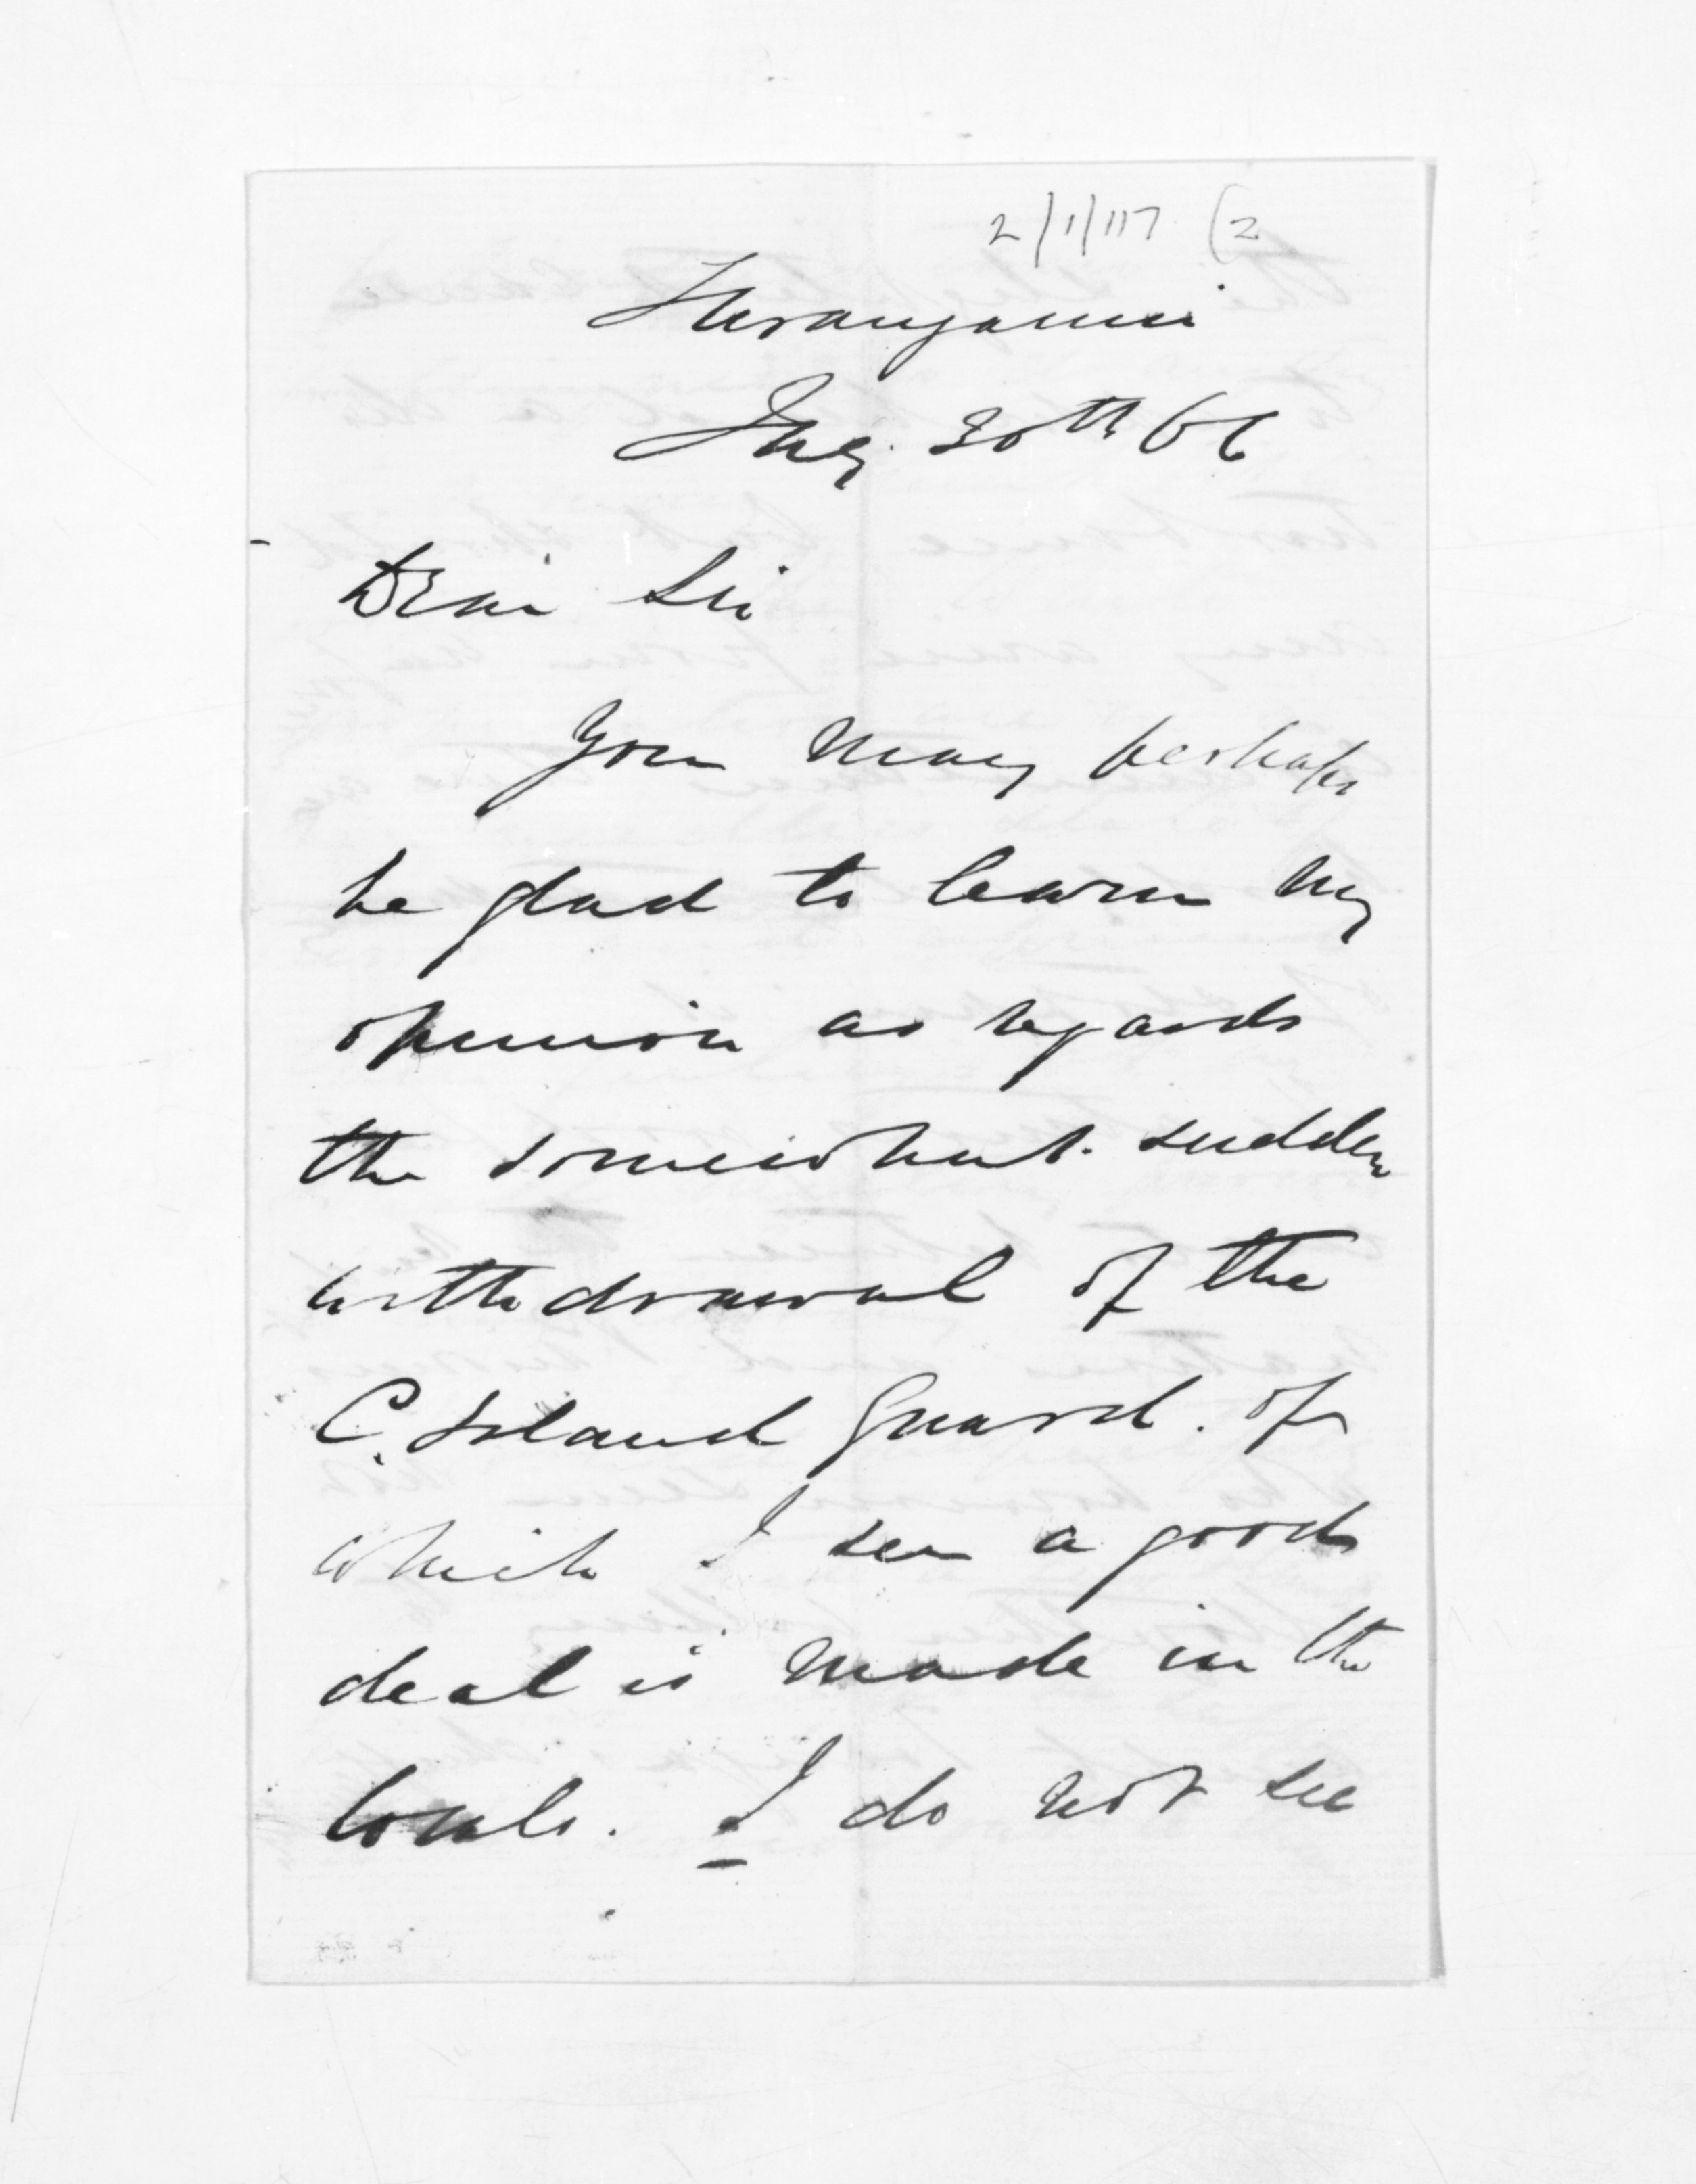 2/1/117 (2
Turanganui
Aug. 30th 66
Dear Sir
You may perhaps
be glad to learn my
opinion as regards
the somewhat sudden
withdrawal of the
C. Island Guard. of
which I see a good
deal is made in the
locals. I do not see